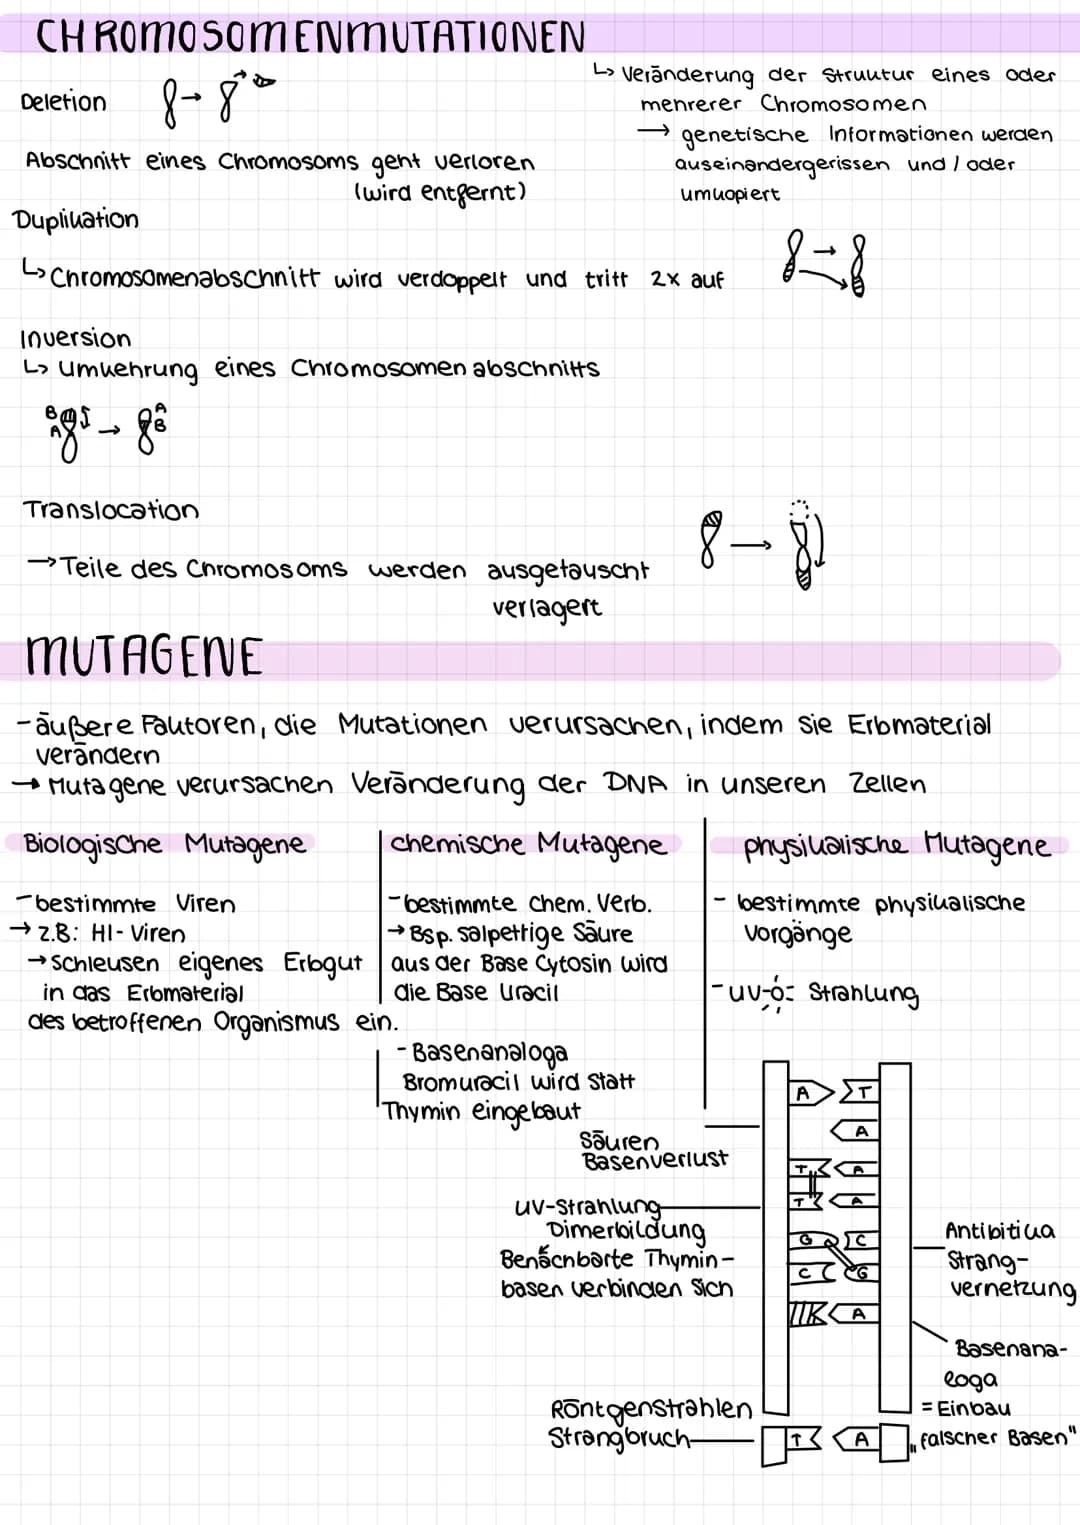 CHROMOSOMENMUTATIONEN
↳ Veränderung der Struktur eines oder
mehrerer Chromosomen
→ genetische Informationen werden
auseinandergerissen und / oder
umkopiert
Deletion
Abschnitt eines Chromosoms geht verloren
(wird entfernt)
Duplikation
↳ Chromosomenabschnitt wird verdoppelt und tritt 2x auf
Inversion
↳ Umkehrung eines Chromosomenabschnitts
B
A
A
B
Translocation
→ Teile des Chromosoms werden ausgetauscht
verlagert
MUTAGENE
- äußere Faktoren, die Mutationen verursachen, indem sie Erbmaterial
verändern
→ Mutagene verursachen Veränderung der DNA in unseren Zellen
Biologische Mutagene
- bestimmte Viren
→ z.B: HI-Viren
→ schleusen eigenes Erbgut
in das Erbmaterial
des betroffenen Organismus ein.
chemische Mutagene
- bestimmte chem. Verb.
→ Bsp. salpettrige Säure
aus der Base Cytosin wird
die Base Uracil
- Basenanaloga
Bromuracil wird statt
Thymin eingebaut
physikalische Mutagene
- bestimmte physikalische
Vorgänge
- UV- Strahlung
Säuren
Basenverlust
UV-Strahlung
Dimerbildung
Benachbarte Thymin-
basen verbinden sich
Röntgenstrahlen
Strangbruch
A T
A
T A
T A
G C
C G
A
T A
Antibitika
Strang-
vernetzung
Basenana-
loga
= Einbau
"falscher Basen"